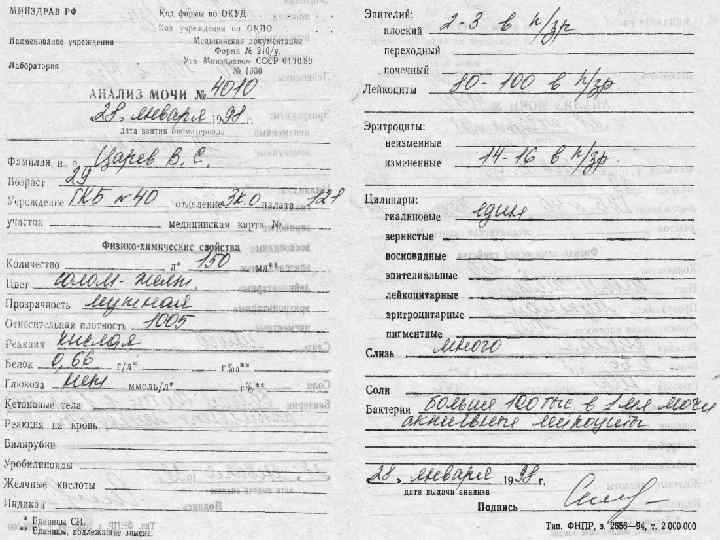 МИНЗДРАВ РФ
Наименование учреждения
Лаборатория
Код формы по ОКУД
Код учреждения по ОКПО
Медицинская документация
Форма № 210/у.
Утв Минздравом СССР 04.10.80
№ 1030
АНАЛИЗ МОЧИ № 4010
28. января 1998 г.
дата взятия биоматериала
Фамилия и., о. Царев В. С.
Возраст 29
Учреждение ГКБ № 40 отделение палата 121
участок медицинская карта №
Физико-химические свойства
Количество л* 150 мл**
Цвет солом-желт
Прозрачность мутная
Относительная плотность 1005
Реакция кислая
Белок 0,66 г/л* г%**
Глюкоза нет ммоль/л* г%**
Кетоновые тела
Реакция на кровь
Билирубин
Уробилиноиды
Желчные кислоты
Индикан
* Единицы СИ.
** Единицы, подлежащие изъятию
Эпителий:
плоский 2-3 в п/зр
переходный
почечный
Лейкоциты 80-100 в п/зр
Эритроциты:
неизменные
измененные 14-16 в п/зр.
Цилиндры:
гиалиновые един
зернистые
восковидные
эпителиальные
лейкоцитарные
эритроцитарные
пигментные
Слизь много
Соли
Бактерии больше 100 тыс в 1 мл мочи
активные лейкоциты
28. января 1998 г.
дата выдачи анализа
Подпись
Тип. ФНПР, з. 2556—94, т. 2 000 000